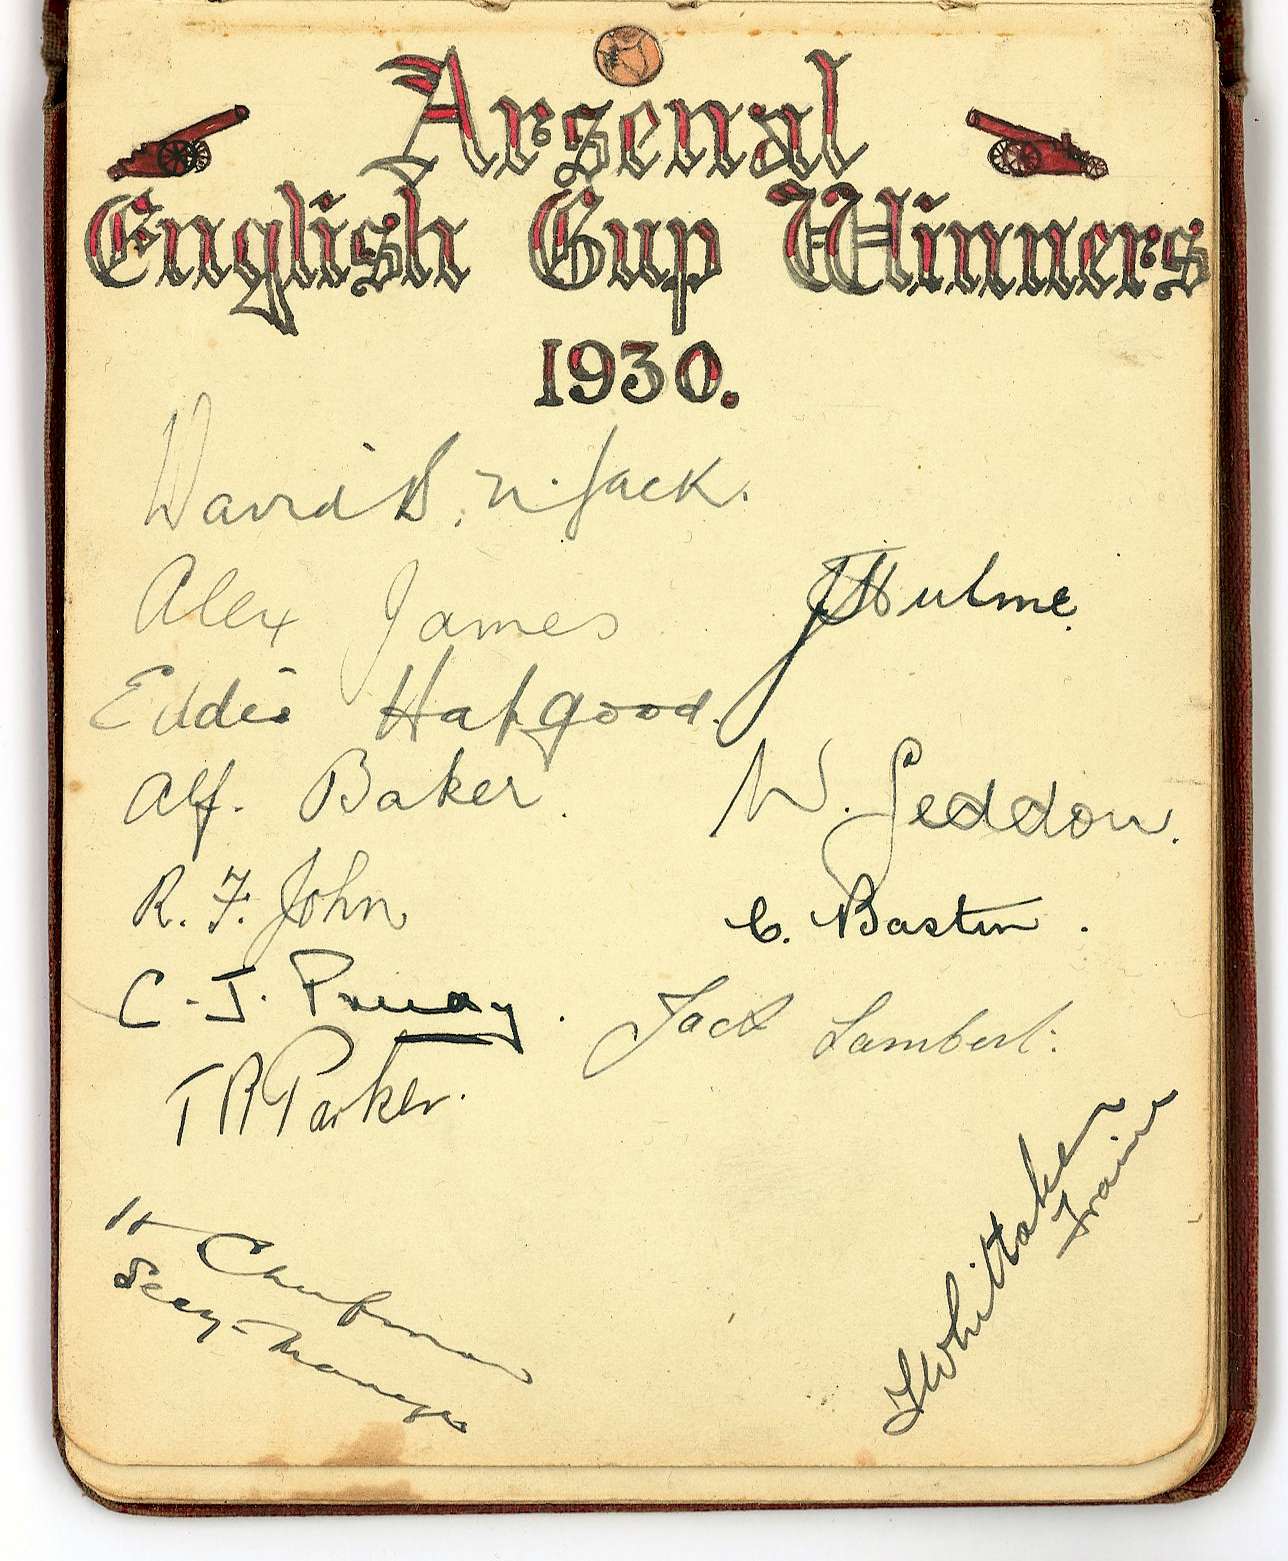 Arsenal
English Cup Winners
1930.
David B. N. Jack.
Alex James
J Hulme.
Eddie Hapgood.
Alf. Baker.
W. Seddon.
R. F. John
C. Bastin.
C. J. Preedy.
Jack Lambert.
T R Parker.
H Chapman
Secy-Manager
T Whittaker
Trainer